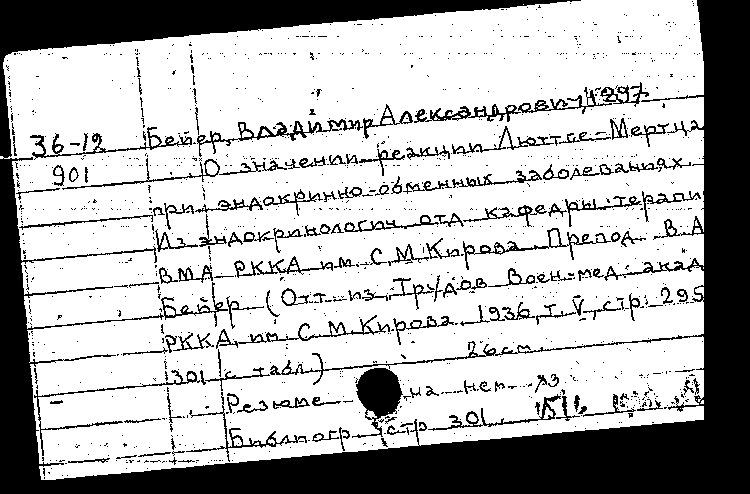 36-12 Бейер, Владимир Александрович, 1897.
901 О значении реакции Люттге-Мертца
при эндокринно-обменных заболеваниях.
Из эндокринологич. отд. кафедры терапи
ВМА РККА им. С. М. Кирова. Препод. В. А
Бейер (Отт. из "Трудов Воен-мед. акад
РККА им. С. М. Кирова. 1936, т. V, стр. 295
301 с табл.) 26 см.
Резюме на нем. яз
Библиогр. стр 301.